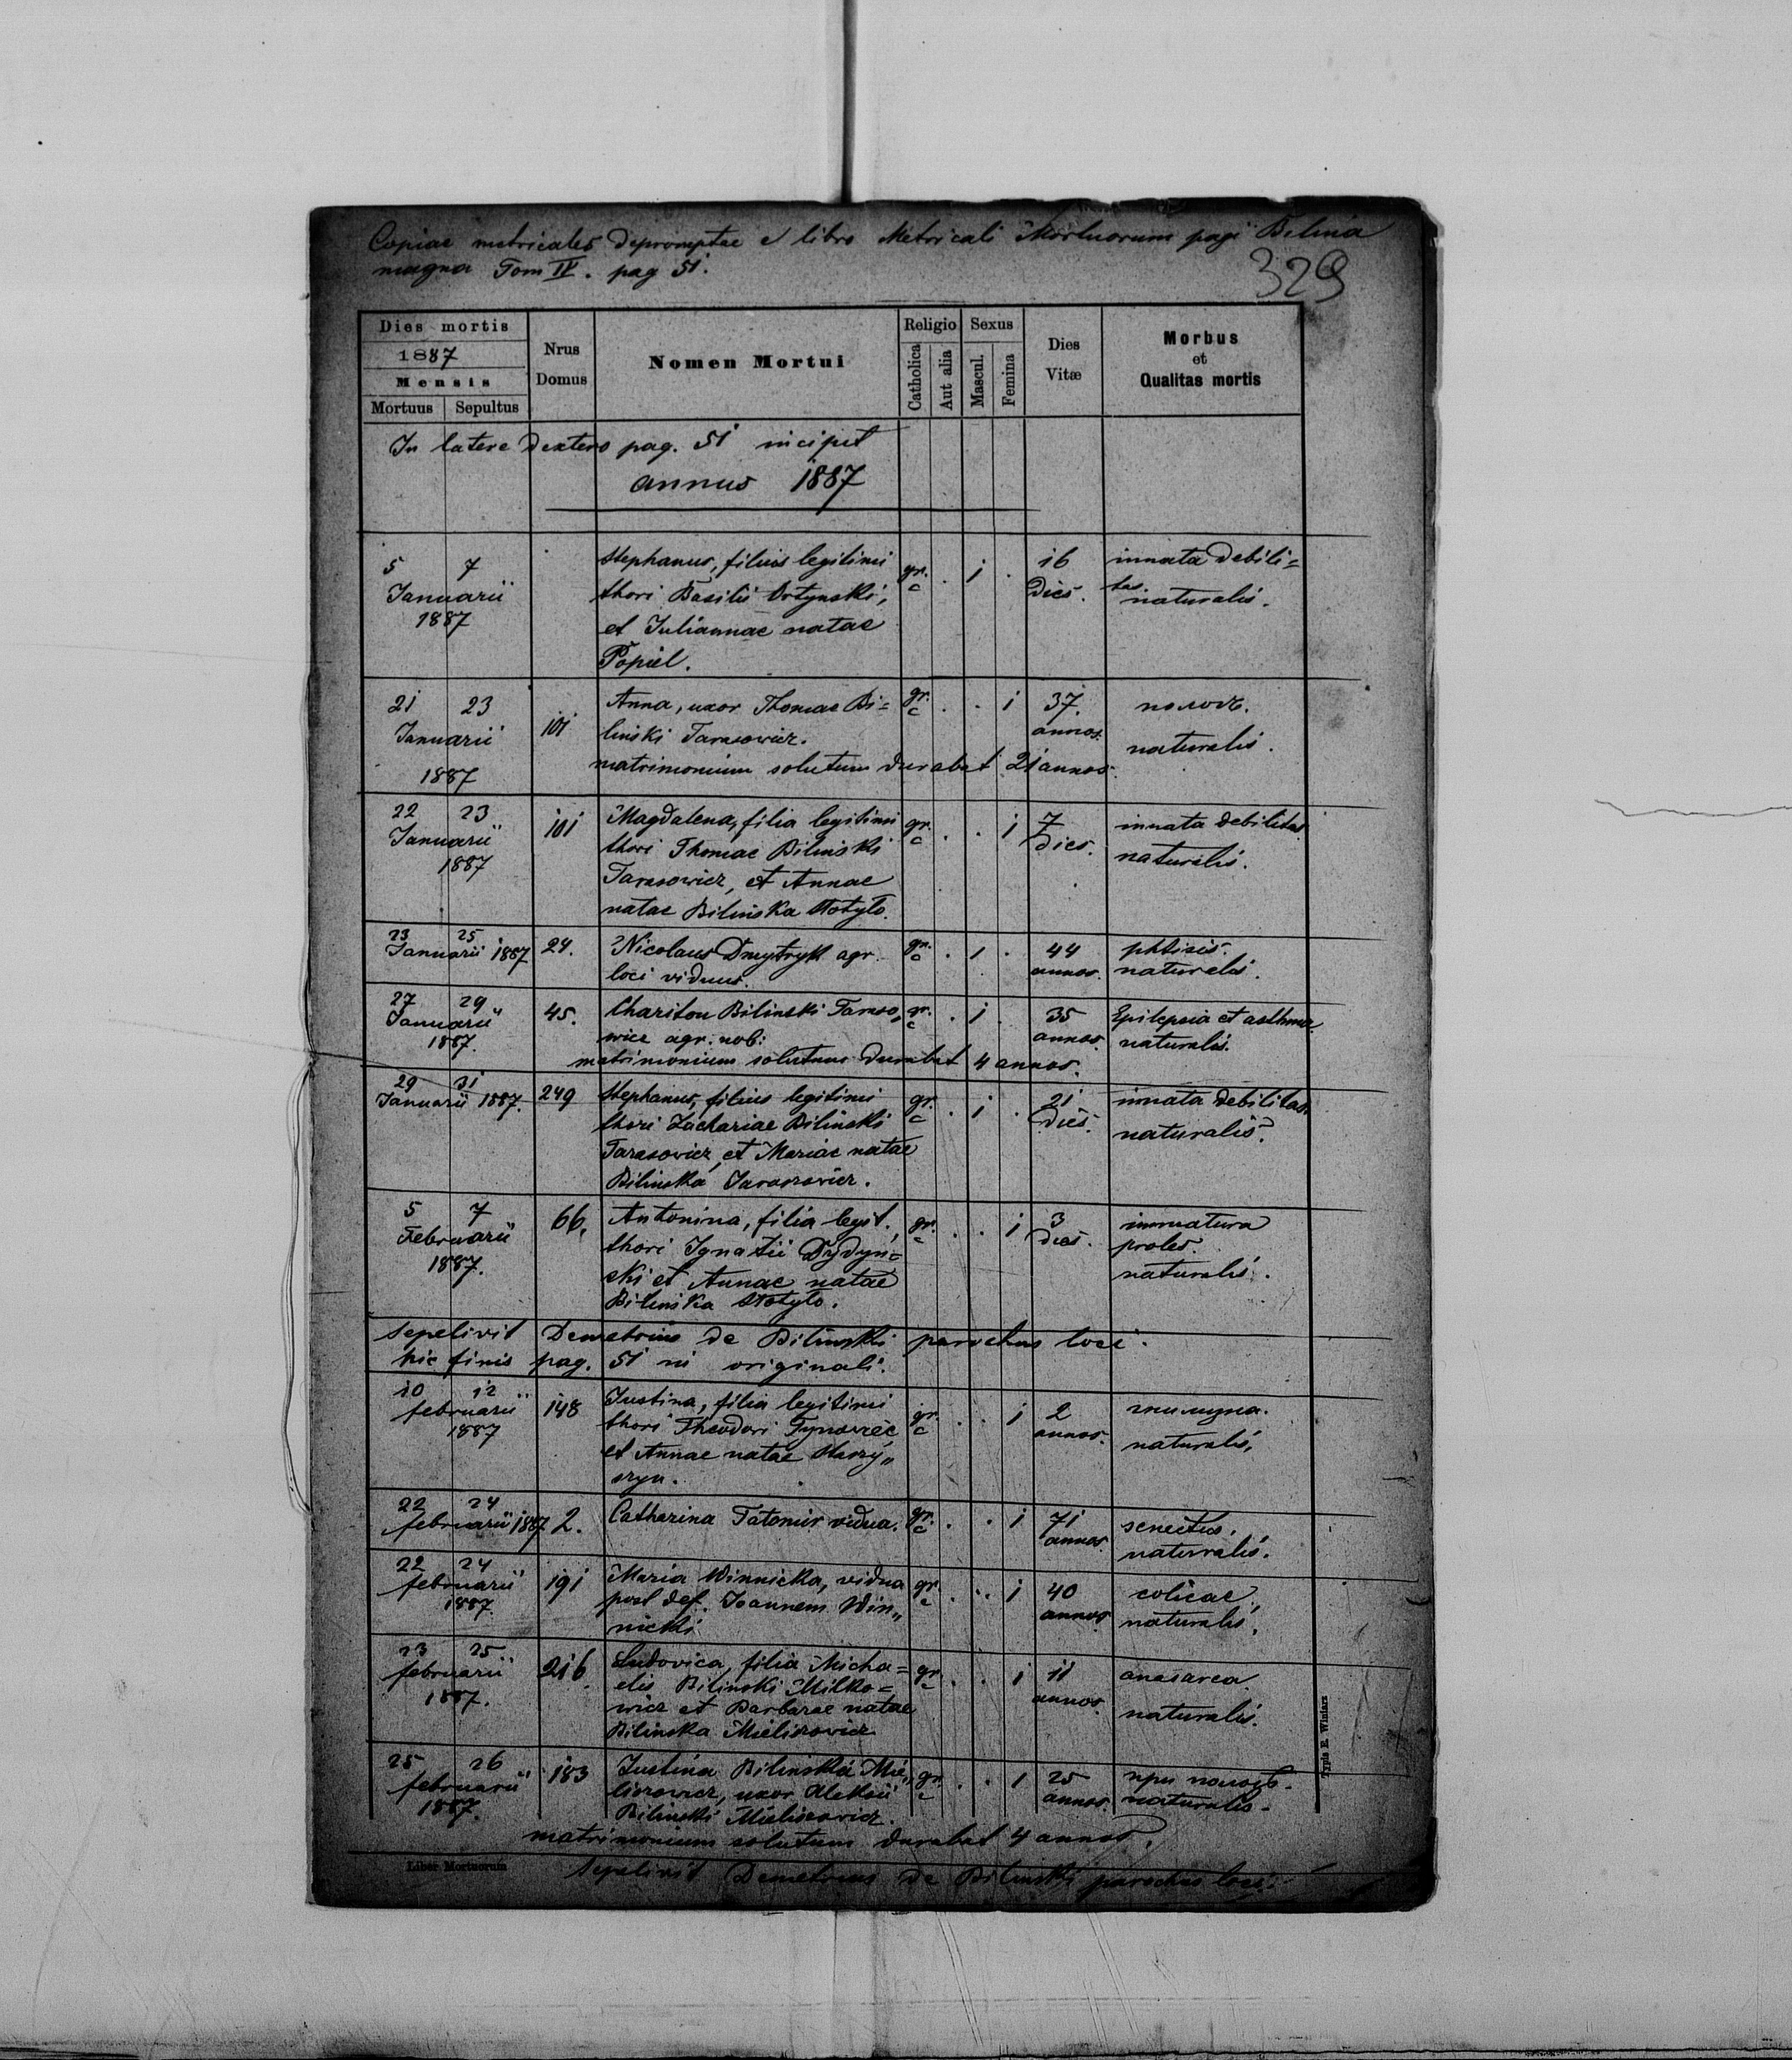 Copiae metricales depromptae e libro Metricali Mortuorum pagi Bilina
magna Tom IV. pag 51.
329
Dies mortis
1887
Mensis
Mortuus Sepultus
Nrus
Domus
Nomen Mortui
Religio
Catholica
Aut alia
Sexus
Mascul.
Femina
Dies
Vitæ
Morbus
et
Qualitas mortis
In latere dextero pag. 51 incipit
annus 1887
5 7
Januarii
1887
Stephanus, filius legitimi
thori Basilii Ortynski,
et Juliannae natae
Popiel.
gr.
c
. 1 .
16
dies.
innata debili=
tas
naturalis.
21 23
Januarii
1887
101
Anna, uxor Thomae Bi=
linski Tarasowicz.
matrimonium solutum durabat 21 annos.
gr.
c
. . 1
37.
annos.
naturalis.
22 23
Januarii
1887
101
Magdalena, filia legitimi
thori Thomae Bilinski
Tarasowicz, et Annae
natae Bilinska
gr.
c
. . 1
7
dies.
innata debilitas
naturalis.
23 25
Januarii 1887
24.
Nicolaus Dmytryk agr.
loci viduus.
gr.
c
. 1 .
44
annos.
phtisis.
naturalis.
27 29
Januarii
1887.
45.
Chariton Bilinski Taraso„
wicz agr. nob:
matrimonium solutum durabat 4 annos.
gr.
c
. 1 .
35
annos.
Epilepsia et asthma
naturalis.
29 31
Januarii 1887.
249
Stephanus, filius legitimi
thori Zachariae Bilinski
Tarasowicz, et Mariae natae
Bilinska Tarasowicz.
gr.
c
. 1 .
21
dies.
innata debilitas
naturalis.
5 7
Februarii
1887.
66.
Antonina, filia legit.
thori Ignatii Dydyń=
ski et Annae natae
Bilinska
gr.
c
. . 1
3
dies.
immatura
proles.
naturalis.
Sepelivit Demetrius de Bilinski parochus loci.
hic finis pag. 51 in originali.
10 12
februarii
1887
148
Justina, filia legitimi
thori Theodori
et Annae natae
gr.
c
. . 1
2
annos.
naturalis.
22 24
februarii 1887
2.
Catharina Tatomir vidua.
gr.
c
. . 1
71
annos
senectus.
naturalis.
22 24
februarii
1887.
191
Maria Winnicka, vidua
post def. Joannem Win„
nicki
gr.
c
. . 1
40
annos
colicae,
naturalis.
23 25
februarii
1887.
216.
Ludovica, filia Micha=
elis Bilinski Milko=
wicz et Barbarae natae
Bilinska Mielisowicz
gr.
c
. . 1
11
annos.
anasarca.
naturalis.
25 26
februarii
1887.
183
Justina Bilinska Mie„
lisowicz, uxor Aleksii
Bilinski Mielisowicz.
matrimonium solutum durabat 4 annos.
gr.
c
. . 1
25
annos.
naturalis.
Typis E. Winiarz
Liber Mortuorum
Sepelivit Demetrius de Bilinski parochus loci.